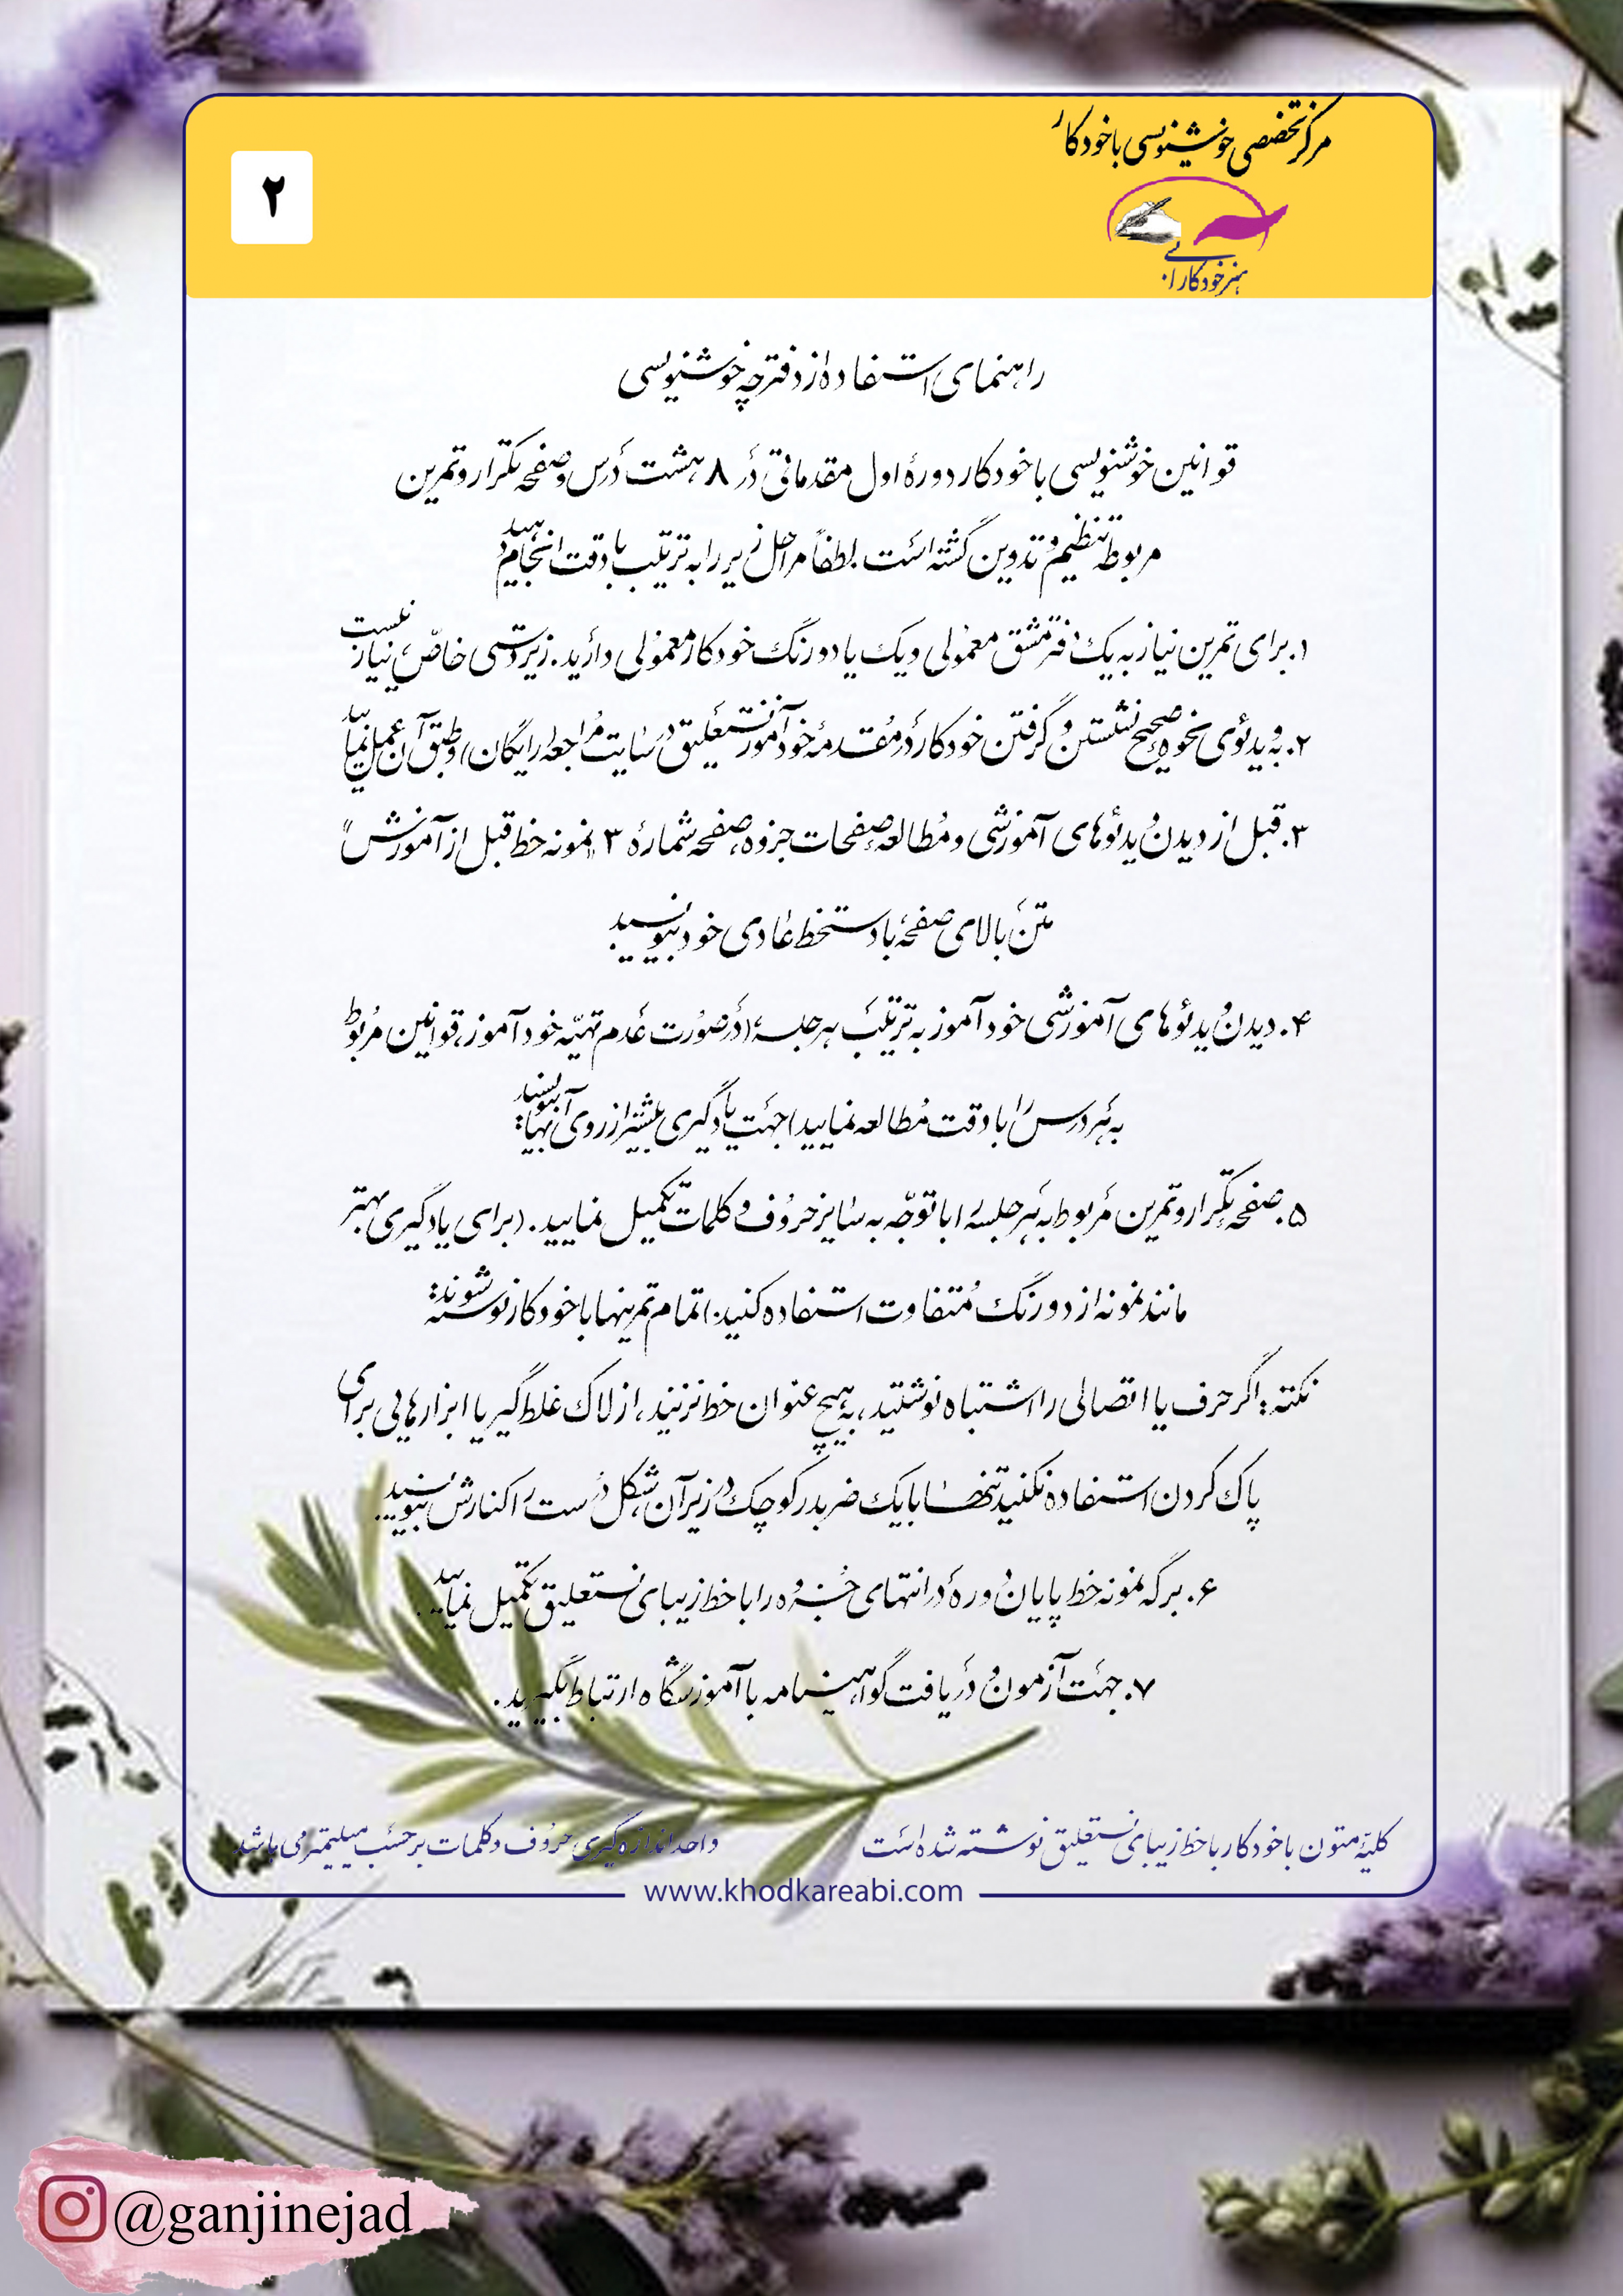 مرکز تخصصی خوشنویسی با خودکار
هنر خودکار آبی
۲
راهنمای استفاده از دفترچه خوشنویسی
قوانین خوشنویسی با خودکار دورهٔ اول مقدماتی در ۸ هشت درس و صفحه تکرار و تمرین
مربوط تنظیم و تدوین گشته است. لطفاً مراحل زیر را به ترتیب با دقت انجام دهید
۱. برای تمرین نیاز به یک دفتر مشق معمولی و یک یا دو رنگ خودکار معمولی دارید. زیردستی خاصّی نیاز نیست
۲. به ویدئوی نحوه صحیح نشستن و گرفتن خودکار در مقدمهٔ خودآموز نستعلیق در سایت مراجعه (رایگان) و طبق آن عمل نمایید
۳. قبل از دیدن ویدئوهای آموزشی و مطالعه صفحات جزوه، صفحه شمارهٔ ۳ "نمونه خط قبل از آموزش"
متن بالای صفحه با دستخط عادی خود بنویسید
۴. دیدن ویدئوهای آموزشی خودآموز به ترتیب هر جلسه، (در صورت عدم تهیّه خودآموز، قوانین مربوط
به هر درس را با دقت مطالعه نمایید) جهت یادگیری بیشتر از روی آنها بنویسید.
۵. صفحه تکرار و تمرین مربوط به هر جلسه را با توجّه به سایز حروف و کلمات تکمیل نمایید. (برای یادگیری بهتر
مانند نمونه از دو رنگ متفاوت استفاده کنید.) تمام تمرینها با خودکار نوشته شوند.
نکته: اگر حرف یا اتصالی را اشتباه نوشتید، به هیچ عنوان خط نزنید، از لاک غلط گیر یا ابزارهایی برای
پاک کردن استفاده نکنید تنها با یک ضربدر کوچک در زیر آن، شکل درست را کنارش بنویسید.
۶. برگه نمونه خط پایان دوره در انتهای جزوه را با خط زیبای نستعلیق تکمیل نمایید.
۷. جهت آزمون و دریافت گواهینامه با آموزشگاه ارتباط بگیرید.
کلیّه متون با خودکار با خط زیبای نستعلیق نوشته شده است
واحد اندازه گیری حروف و کلمات بر حسب میلیمتر می باشد
www.khodkareabi.com
@ganjinejad